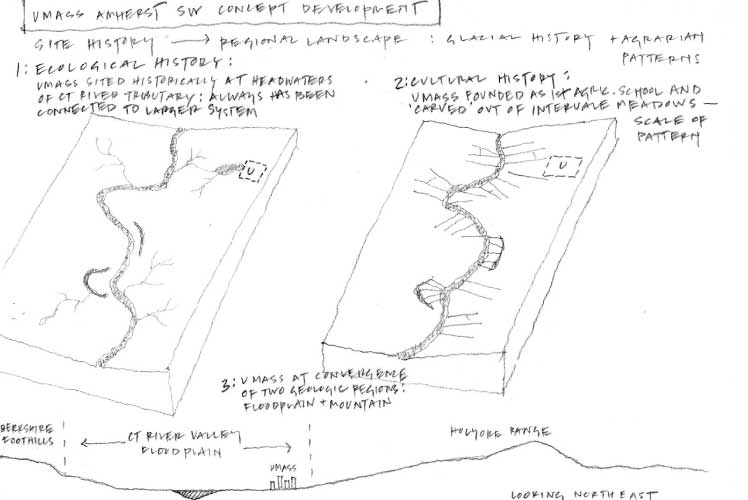 UMASS AMHERST SW CONCEPT DEVELOPMENT
SITE HISTORY → REGIONAL LANDSCAPE : GLACIAL HISTORY + AGRARIAN
PATTERNS
1: ECOLOGICAL HISTORY:
UMASS SITED HISTORICALLY AT HEADWATERS
OF CT RIVER TRIBUTARY: ALWAYS HAS BEEN
CONNECTED TO LARGER SYSTEM
2: CULTURAL HISTORY:
UMASS FOUNDED AS 1st AGRIC. SCHOOL AND
'CARVED' OUT OF INTERVALE MEADOWS —
SCALE OF
PATTERN
U
U
3: UMASS AT CONVERGENCE
OF TWO GEOLOGIC REGIONS:
FLOODPLAIN + MOUNTAIN
BERKSHIRE
FOOTHILLS
CT RIVER VALLEY
FLOODPLAIN
UMASS
HOLYOKE RANGE
LOOKING NORTHEAST